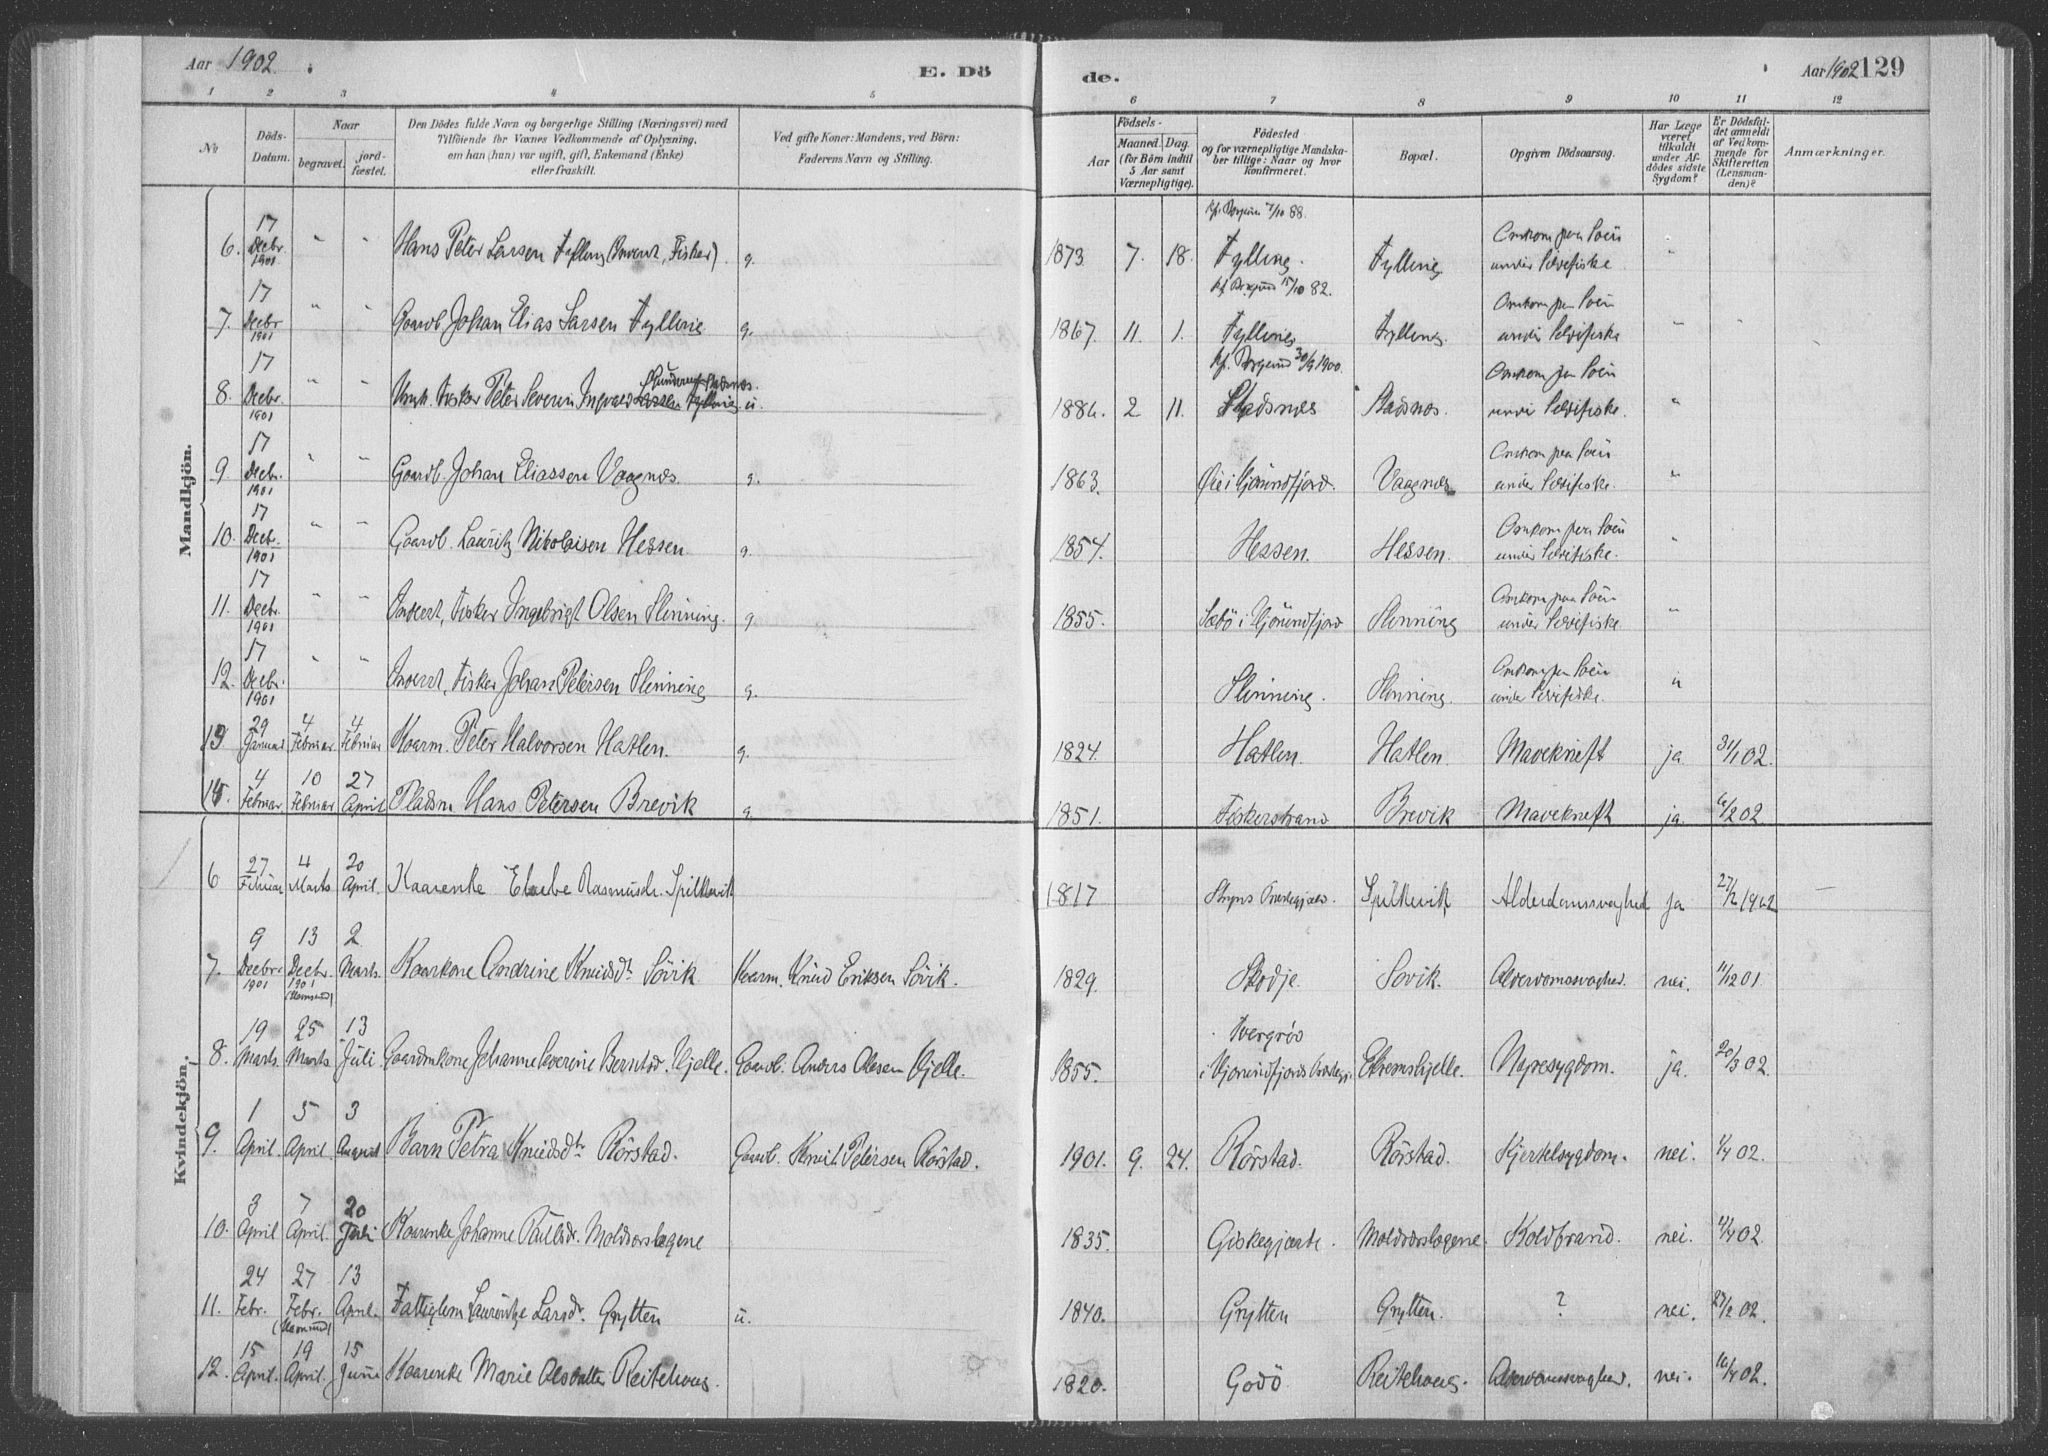 Aar 1902.
E. Dö
de.
Aar 1902 129
1 2 3 4 5 6 7 8 9 10 11 12
No
Döds-Datum.
Naar
begravet.
jord-fæstet.
Den Dödes fulde Navn og borgerlige Stilling (Næringsvei) med
Tilföiende for Voxnes Vedkommende af Oplysning,
om han (hun) var ugift, gift, Enkemand (Enke)
eller fraskilt.
Ved gifte Koner: Mandens, ved Börn:
Faderens Navn og Stilling.
Födsels-
Aar
Maaned. Dag.
(for Börn indtil
5 Aar samt
Værnepligtige).
Födested
og for værnepligtige Mandska-
ber tillige: Naar og hvor
konfirmeret.
Bopæl.
Opgiven Dödsaarsag.
Har Læge
været
tilkaldt
under Af-
dödes sidste
Sygdom?
Er Dödsfal-
det anmeldt
af Vedkom-
mende for
Skifteretten
(Lensman-
den)?
Anmærkninger.
Mandkjön.
6. 17 Decbr. 1901 " " Hans Peter Larsen Fylling (Inderst, Fisker). g. 1873. 7. 18. Kf. Borgund 7/10 88. Fylling. Fylling. Omkom paa Söen under Sildefiske. "
7. 17 Decbr 1901 " " Gaardb. Johan Elias Larsen Fylling g. 1867. 11. 1. Kf. Borgund 15/10 82. Fylling Fylling. Omkom paa Söen under Sildefiske " "
8. 17 Decbr. 1901 " " Ungk. Fisker Peter Severin Ingvald Larsen Fylling u. 2 11. Kf. Borgund 30/9 1900. Stadsnes Stadsnes. Omkom paa Söen under Sildefiske. "
9. 17 Decbr. 1901 " " Gaardb. Johan Eliassen Vaagnes. g. 1863. Öie i Hjörundfjord. Vaagnes Omkom paa Söen under Sildefiske. "
10. 17 Decbr. 1901 " " Gaardb. Lauritz Nikolaisen Hessen. g. 1854. Hessen. Hessen. Omkom paa Söen under Sildefiske. "
11. 17 Decbr. 1901 " " Inderst, Fisker Ingebrigt Olsen Slinning. g 1855. Sæbö i Hjörundfjord Slinning Omkom paa Söen under Sildefiske. "
12. 17 Decbr. 1901 " " Inderst, Fisker Johan Petersen Slinning g. Slinning. Slinning. Omkom paa Söen under Sildefiske. "
13 29 Januar 4 Februar 4 Februar Kaarm. Peter Halvorsen Hatlen. g. 1824. Hatlen. Hatlen. Mavekræft ja 31/1 02.
4 Februar 10 Februar 27 April Pladsm Hans Petersen Brevik g. 1851. Fiskerstrand Brevik Mavekræft ja. 6/2 02
Kvindekjön.
6 27 Februar 4 Marts 20 April. Kaarenke Rasmusdr. Spilkevik 1817 Spilkevik Alderdomssvaghed ja 27/2 1902 —
7. 9 Decbr. 1901 13 Decbr. 1901 2 Marts. Kaarkone Andrine Knudsdt Sövik Kaarm. Knud Eriksen Sövik. 1829. Skodje. Sövik. Alderdomssvaghed. nei. 11/12 01.
8. 19 Marts. 25 Marts 13 Juli Gaardmkone Johanne Severine Berntsd. Hjelle. Gaardb. Anders Olsen Hjelle. 1855. i Hjörundfjords Ekremshjelle. Nyresygdom. ja. 20/3 02.
9. 1 April. 5 April. 3 August Barn Petra Knudsdtr Rörstad. Gaardb. Knut Petersen Rörstad. 1901. 9. 24. Rörstad. Rörstad. Kjertelsygdom. nei. 1/4 02.
10. 3 April 7 April. 20 Juli Kaarenke Johanne Paulsdr. Moldværshagene 1835. Giskegjærde. Moldværshagene. Koldbrand. nei. 4/4 02.
11. 24 Febr. 27 Febr. 13 April. Fattiglem Laurentze Larsdr. Grytten u. 1840. Grytten Grytten. ? nei. 27/2 02.
12. 15 April. 19 April. 15 Juni Kaarenke Marie Olsdatter Reitehoug. 1820. Godö Reitehoug. Alderdomssvaghed. nei. 16/4 02.